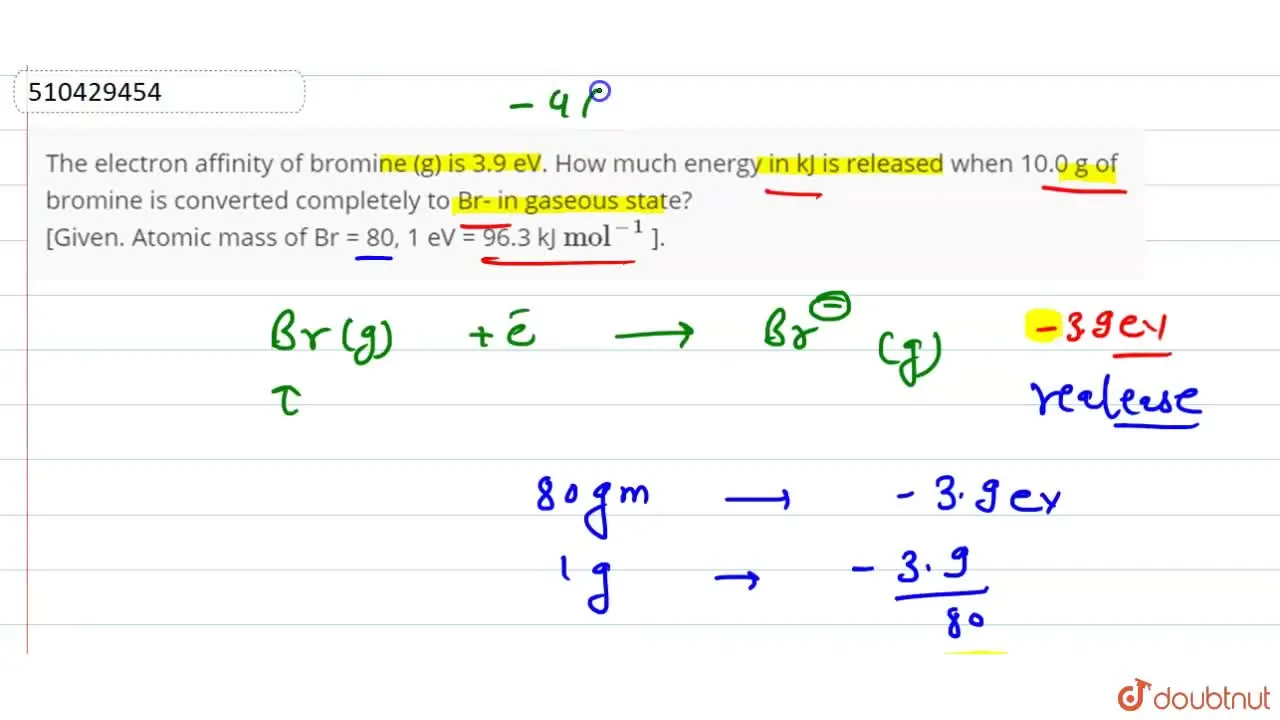 510429454
- 4
The electron affinity of bromine (g) is 3.9 eV. How much energy in kJ is released when 10.0 g of
bromine is converted completely to Br- in gaseous state?
[Given. Atomic mass of Br = 80, 1 eV = 96.3 kJ mol⁻¹ ].
Br(g) + e̅ ⟶ Br⊖ (g) - 3.9 ev
realease
80 gm → - 3.9 ev
1 g → - 3.9
80
doubtnut